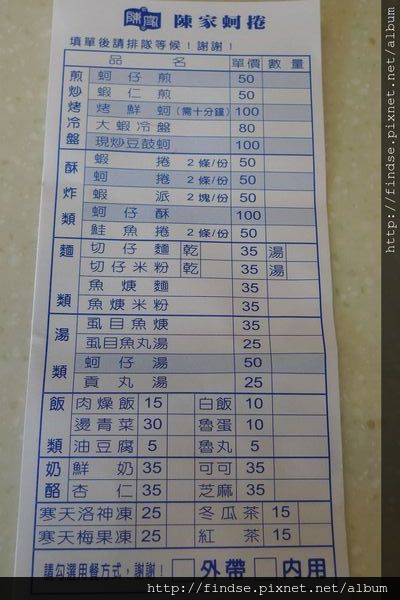 陳家 陳家蚵捲
填單後請排隊等候！謝謝！
品名 單價 數量
煎炒烤冷盤
蚵仔煎 50
蝦仁煎 50
烤鮮蚵(需十分鐘) 100
大蝦冷盤 80
現炒豆鼓蚵 100
酥炸類
蝦捲 2條/份 50
蚵捲 2條/份 50
蝦派 2塊/份 50
蚵仔酥 100
鮭魚捲 2條/份 50
麵類
切仔麵 乾 35 湯
切仔米粉 乾 35 湯
魚焿麵 35
魚焿米粉 35
湯類
虱目魚焿 35
虱目魚丸湯 25
蚵仔湯 50
貢丸湯 25
飯類
肉燥飯 15 白飯 10
燙青菜 30 魯蛋 10
油豆腐 5 魯丸 5
奶酪
鮮奶 35 可可 35
杏仁 35 芝麻 35
寒天洛神凍 25 冬瓜茶 15
寒天梅果凍 25 紅茶 15
請勾選用餐方式，謝謝！ 外帶 內用
http://findse.pixnet.net/album
http://findse.pixnet.net/album